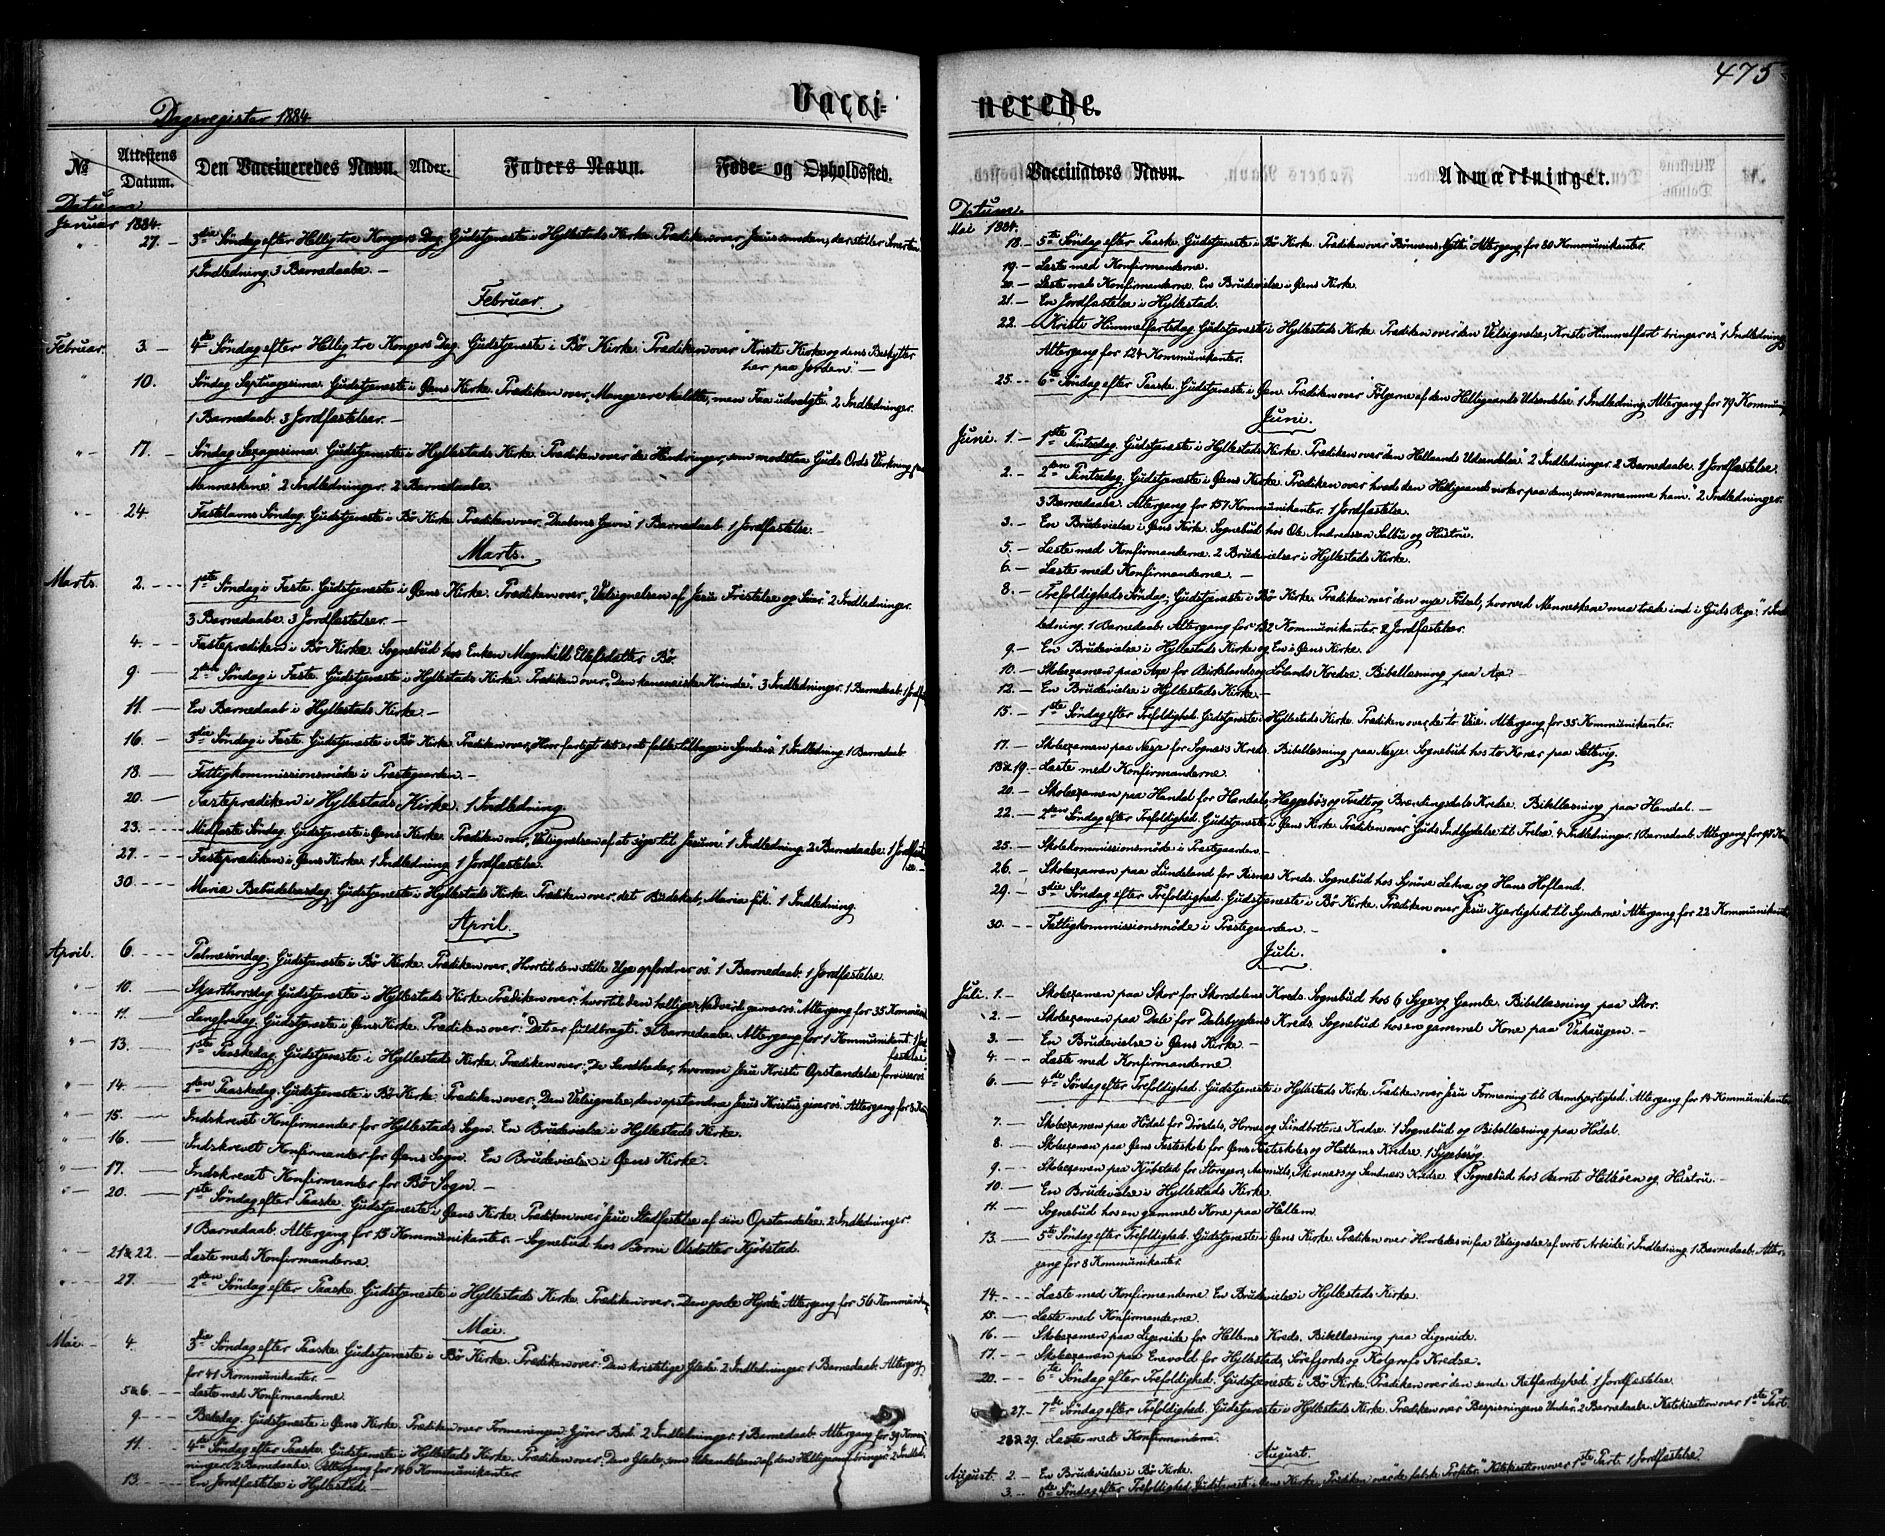 475
Vacci-
nerede.
Dagsregister 1884
No
Attestens Datum.
Den Vaccineredes Navn.
Alder.
Faders Navn.
Føde- og Opholdssted.
Datum
Januar 1884.
" 27. - 3die Søndag efter Hellig tre Kongers Dag. Gudstjeneste i Hyllestads Kirke. Prædiken over, Jesus som den, der stiller
1 Indledning, 3 Barnedaabe. -
Februar.
Februar. 3. - 4de Søndag efter Hellig tre Kongers Dag. Gudstjeneste i Bø Kirke. Prædiken over "Kristi Kirke og dens Beskytter
her paa Jorden". -
" 10. Søndag Septuagesima. Gudstjeneste i Øens Kirke. Prædiken over "Mange ere kaldte, men Faa udvalgte". 2 Indledninger.
1 Barnedaab. 3 Jordfæstelser. -
" 17. Søndag Sexagesima. Gudstjeneste i Hyllestads Kirke. Prædiken over "de Hindringer, som modstaa Guds Ords Virkning paa
Menneskene". 2 Indledninger. 2 Barnedaabe.
" 24. Fastelavns Søndag. Gudstjeneste i Bø Kirke. Prædiken over "Daabens Gavn". 1 Barnedaab. 1 Jordfæstelse. -
Marts.
Marts. 2. - 1ste Søndag i Faste. Gudstjeneste i Øens Kirke. Prædiken over "Velsignelsen af Jesu Fristelse og Seier". 2 Indledninger.
3 Barnedaabe. 3 Jordfæstelser. -
4. - Fasteprædiken i Bø Kirke. Sognebud hos Enken Magnhild Ellefsdatter Bø.
9. - 2den Søndag i Faste. Gudstjeneste i Hyllestads Kirke. Prædiken over "Den kananæiske Kvinde". 3 Indledninger. 1 Barnedaab. 1
11. - En Barnedaab i Hyllestads Kirke. -
16. - 3die Søndag i Faste. Gudstjeneste i Bø Kirke. Prædiken over "Hvor farligt det er at falde tilbage i Synden". 1 Indledning. 1 Barnedaab
18. - Fattigkommissionsmøde i Præstegaarden. -
20. - Fasteprædiken i Hyllestads Kirke. 1 Indledning.
23. - Midfaste Søndag. Gudstjeneste i Øens Kirke. Prædiken over "Velsignelsen af at sige til Jesum". 1 Indledning. 2 Barnedaabe. 1
27. - Fasteprædiken i Øens Kirke. 1 Indledning. 1 Jordfæstelse.
30. - Mariæ Bebudelsesdag. Gudstjeneste i Hyllestads Kirke. Prædiken over det Budskab, Maria fik. 1 Indledning.
April.
April. 6. - Palmesøndag. Gudstjeneste i Bø Kirke. Prædiken over "Hvortil den stille Uge opfordrer os". 1 Barnedaab. 1 Jordfæstelse.
" 10. - Skjærthorsdag. Gudstjeneste i Hyllestads Kirke. Prædiken over "hvortil den hellige Nadverd gives os". Altergang for 35
" 11. - Langfredag. Gudstjeneste i Øens Kirke. Prædiken over: "Det er fuldbragt". 3 Barnedaabe. Altergang for 1 Kommunikant. 1
" 13. - 1ste Paaskedag. Gudstjeneste i Hyllestads Kirke. Prædiken over "De Sandheder, hvorom Jesu Kristi Opstandelse forvisser os"
" 14. - 2den Paaskedag. Gudstjeneste i Bø Kirke. Prædiken over "Den Velsignelse, den opstandne Jesus Kristus giver os". Altergang for 8
" 15. - Indskrevet Konfirmander for Hyllestads Sogn. En Brudevielse i Hyllestads Kirke.
" 16. - Indskrevet Konfirmanter for Øens Sogn. En Brudevielse i Øens Kirke.
" 17. - Indskrevet Konfirmander for Bø Sogn. -
" 20. - 1ste Søndag efter Paaske. Gudstjeneste i Øens Kirke. Prædiken over "Jesu Stadfæstelse af sin Opstandelse". 2 Indledninger.
1 Barnedaab. Altergang for 13 Kommunikanter. - Sognebud hos Berni Olsdatter Kjøbstad
" 21 & 22. - Læste med Konfirmanderne.
" 27. - 2den Søndag efter Paaske. Gudstjeneste i Hyllestads Kirke. Prædiken over "Den gode Hyrde". Altergang for 56
Mai.
Mai. 4. 3die Søndag efter Paaske. Gudstjeneste i Bø Kirke. Prædiken over "Den kristelige Glæde". 2 Indledninger. 1 Barnedaab. Altergang
for 41 Kommunikanter. -
5 & 6. - Læste med Konfirmanderne.
9. - Bededag. Gudstjeneste i Øens Kirke. Prædiken over Formaningen: Gjører Bod. 2 Indledninger. 1 Barnedaab. Altergang for 39
11. - 4de Søndag efter Paaske. Gudstjeneste i Hyllestads Kirke. Prædiken over "Den Glæde, som Udsendelsen af den Helligaand bringer". 2
ninger. 2 Barnedaabe. Altergang for 146 Kommunikanter.
13. - En Jordfæstelse i Hyllestad. -
Vaccinators Navn.
Anmærkninger.
Datum.
Mai 1884.
18. - 5te Søndag efter Paaske. Gudstjeneste i Bø Kirke. Prædiken over "Bønnens Nytte". Altergang for 80 Kommunikanter.
19. - Læste med Konfirmanderne.
20. - Læste med Konfirmanderne. En Brudevielse i Øens Kirke.
21. - En Jordfæstelse i Hyllestad.
22. - Kristi Himmelfartsdag. Gudstjeneste i Hyllestads Kirke. Prædiken over "den Velsignelse, Kristi Himmelfart bringer os". 1 Indledning
Altergang for 124 Kommunikanter.
25. - 6te Søndag efter Paaske. Gudstjeneste i Øen. Prædiken over Følgerne af den Helligaands Udsendelse. 1 Indledning. Altergang for 79
Juni.
Juni. 1. - 1ste Pintsedag. Gudstjeneste i Hyllestads Kirke. Prædiken over "den Hellaands Udsendelse". 2 Indledninger. 2 Barnedaabe. 1 Jordfæstelse.
2. - 2den Pintsedag. Gudstjeneste i Øens Kirke. Prædiken over hvad den Helligaand virker paa dem, som annamme ham". 2 Indledninger.
3 Barnedaabe. Altergang for 157 Kommunikanter. 1 Jordfæstelse.
3. - En Brudevielse i Øens Kirke. Sognebud hos Ole Andreassen Salbu og Hustru.
5. - Læste med Konfirmanderne. 2 Brudevielser i Hyllestads Kirke.
6. - Læste med Konfirmanderne. -
8. - Trefoldigheds Søndag. Gudstjeneste i Bø Kirke. Prædiken over "den nye Fødsel, hvorved Menneskene maa træde ind i Guds Rige". 1 Ind
ledning. 1 Barnedaab. Altergang for 132 Kommunikanter. 2 Jordfæstelser.
9. - En Brudevielse i Hyllestads Kirke og En i Øens Kirke.
10. - Skoleexamen paa Aae for Birkelands og Lølands Kredse. Bibellæsning paa Aae.
12. - En Brudevielse i Hyllestads Kirke. -
15. - 1ste Søndag efter Trefoldighed. Gudstjeneste i Hyllestads Kirke. Prædiken over de to Veie. Altergang for 35 Kommunikanter.
17. - Skoleexamen paa Nesje for Sognesø Kreds. Bibellæsning paa Nesje. Sognebud hos to Koner paa Sættevig.
18 & 19. - Læste med Konfirmanderne.
20. - Skoleexamen paa Handal for Handal, Heggebøs og Tredt og Brændingsdals Kredse. Bibellæsning paa Handal. -
22. - 2den Søndag efter Trefoldighed. Gudstjeneste i Øens Kirke. Prædiken over "Guds Indbydelse til Frelse". 4 Indledninger. 1 Barnedaab. Altergang for
25. - Skolekommissionsmøde i Præstegaarden. -
26. - Skoleexamen paa Lundeland for Risnes Kreds. Sognebud hos Synøve Lekva og Hans Hofland.
29. - 3die Søndag efter Trefoldighed. Gudstjeneste i Bø Kirke. Prædiken over Jesu Kjærlighed til Synderne". Altergang for 22 Kommunikanter
30. - Fattigkommissionsmøde i Præstegaarden. -
Juli.
Juli. 1. - Skoleexamen paa Skor for Skordalens Kreds. Sognebud hos 6 Syge og Gamle. Bibellæsning paa Skor.
2. - Skoleexamen paa Dale for Dalsbygdens Kreds. Sognebud hos en gammel Kone paa -
3. - En Brudevielse i Øens Kirke. -
4. - Læste med Konfirmanderne
6. - 4de Søndag efter Trefoldighed. Gudstjeneste i Hyllestads Kirke. Prædiken over Jesu Formaning til Barmhjertighed". Altergang for 14 Kommunikanter
7. - Skoleexamen paa Hødal for Drøsdals, Hornes og Sundbottens Kredse. 1 Sognebud og Bibellæsning paa Hødal.
8. - Skoleexamen paa Øens Fastskole for Øens Fastskoles og Hatlems Kredse. 1 Sygebesøg.
9. - Skoleexamen paa Kjøbstad for Storøgers, Aasmuls, Skivenes og Sandnes Kredse. Sognebud hos Bernt Hatløen og Hustru. -
10. - En Brudevielse i Hyllestads Kirke.
11. - Sognebud hos en gammel Kone paa Hatlem.
13. - 5te Søndag efter Trefoldighed. Gudstjeneste i Øens Kirke. Prædiken over "Hvorledes vi faa Velsignelse af vort Arbeide". 1 Indledning. 1 Barnedaab. Alter-
gang for 8 Kommunikanter.
14. - Læste med Konfirmanderne. En Brudevielse i Hyllestads Kirke.
15. - Læste med Konfirmanderne.
16. - Skoleexamen paa Ligereide for Hellems Kreds. Bibellæsning paa Ligereide.
17. - Skoleexamen paa Enevold for Hyllestads, Sørefjords og Kolgrofs Kredse.
20. - 6te Søndag efter Trefoldighed. Gudstjeneste i Bø Kirke. Prædiken over "den sande Retfærdighed". 1 Jordfæstelse.
27. - 7de Søndag efter Trefoldighed. Gudstjeneste i Hyllestads Kirke. Prædiken over "Bespisningens Under". 2 Barnedaabe. Katekisation over 1ste Part.
28 & 29. Læste med Konfirmanderne.
August.
August. 2. - En Brudevielse i Bø Kirke.
3. - 8de Søndag efter Trefoldighed. Gudstjeneste i Øens Kirke. Prædiken over "de falske Profeter". Katekisation over 1ste Part. 1 Jordfæstelse.